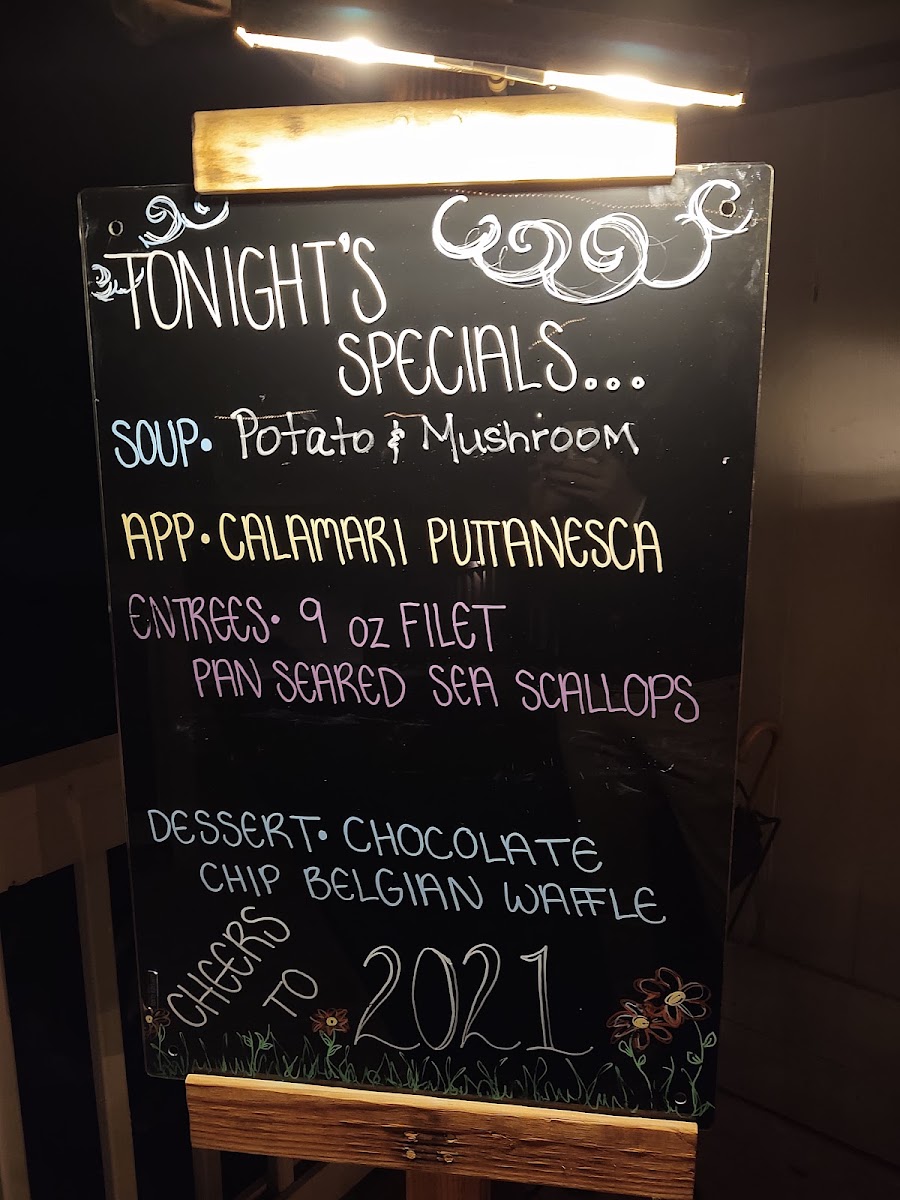 TONIGHT'S
SPECIALS...
SOUP• Potato & Mushroom
APP• CALAMARI PUTTANESCA
ENTREES• 9 oz FILET
PAN SEARED SEA SCALLOPS
DESSERT• CHOCOLATE
CHIP BELGIAN WAFFLE
CHEERS
TO 2021